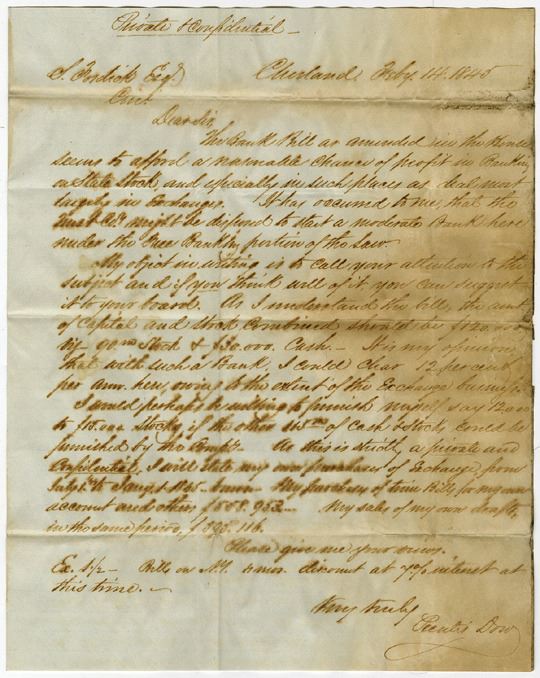 Private & Confidential
S. Fosdick Esq Cleveland Feby 14. 1845
Cinct
Dear Sir,
The Bank Bill as amended in the House
seems to afford a reasonable chance of profit in Banking
on State Stocks, and especially in such places as deal most
largely in Exchanges. It has occurred to me, that the
Trust Co. might be disposed to start a moderate Bank here
under the Free Banking portion of the Law.
My object in writing is to call your attention to the
subject and if you think well of it you can suggest
it to your board. As I understand the bill, the amt
of Capital and Stock Combined should be
Stock & $30.000. Cash. It is my opinion
that with such a Bank, I could clear 12 per cent
per ann. here, owing to the extent of the Exchange business.
I would perhaps be willing to furnish myself say
to $15.000 Stocks, if the other of Cash & Stocks could be
furnished by the Compy. As this is strictly a private and
Confidential, I will state my own purchases of Exchange, from
My purchases of time Bills for my own
account and others, My sales of my own drafts,
in the same period,
Please give me your views.
Ex. 1/2 Bills on N.Y. discount at 7% interest at
this time.
Very truly
Dow